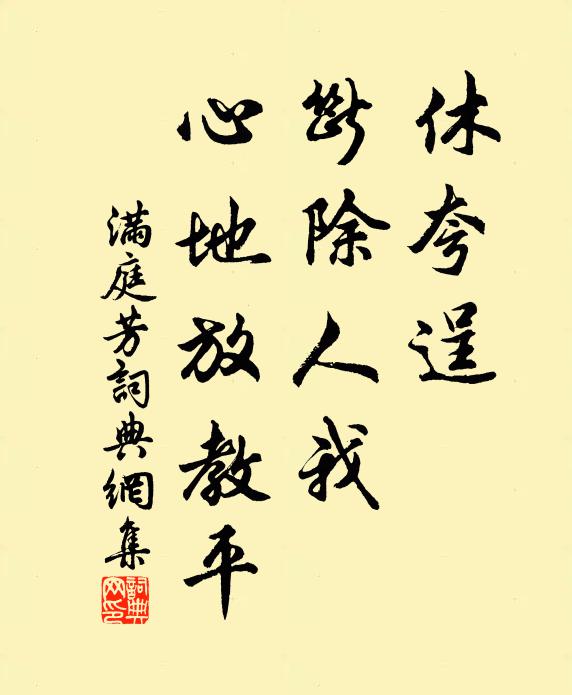 休夸逞
斷除人我
心地放教平
滿庭芳詞典網集
詞典网印